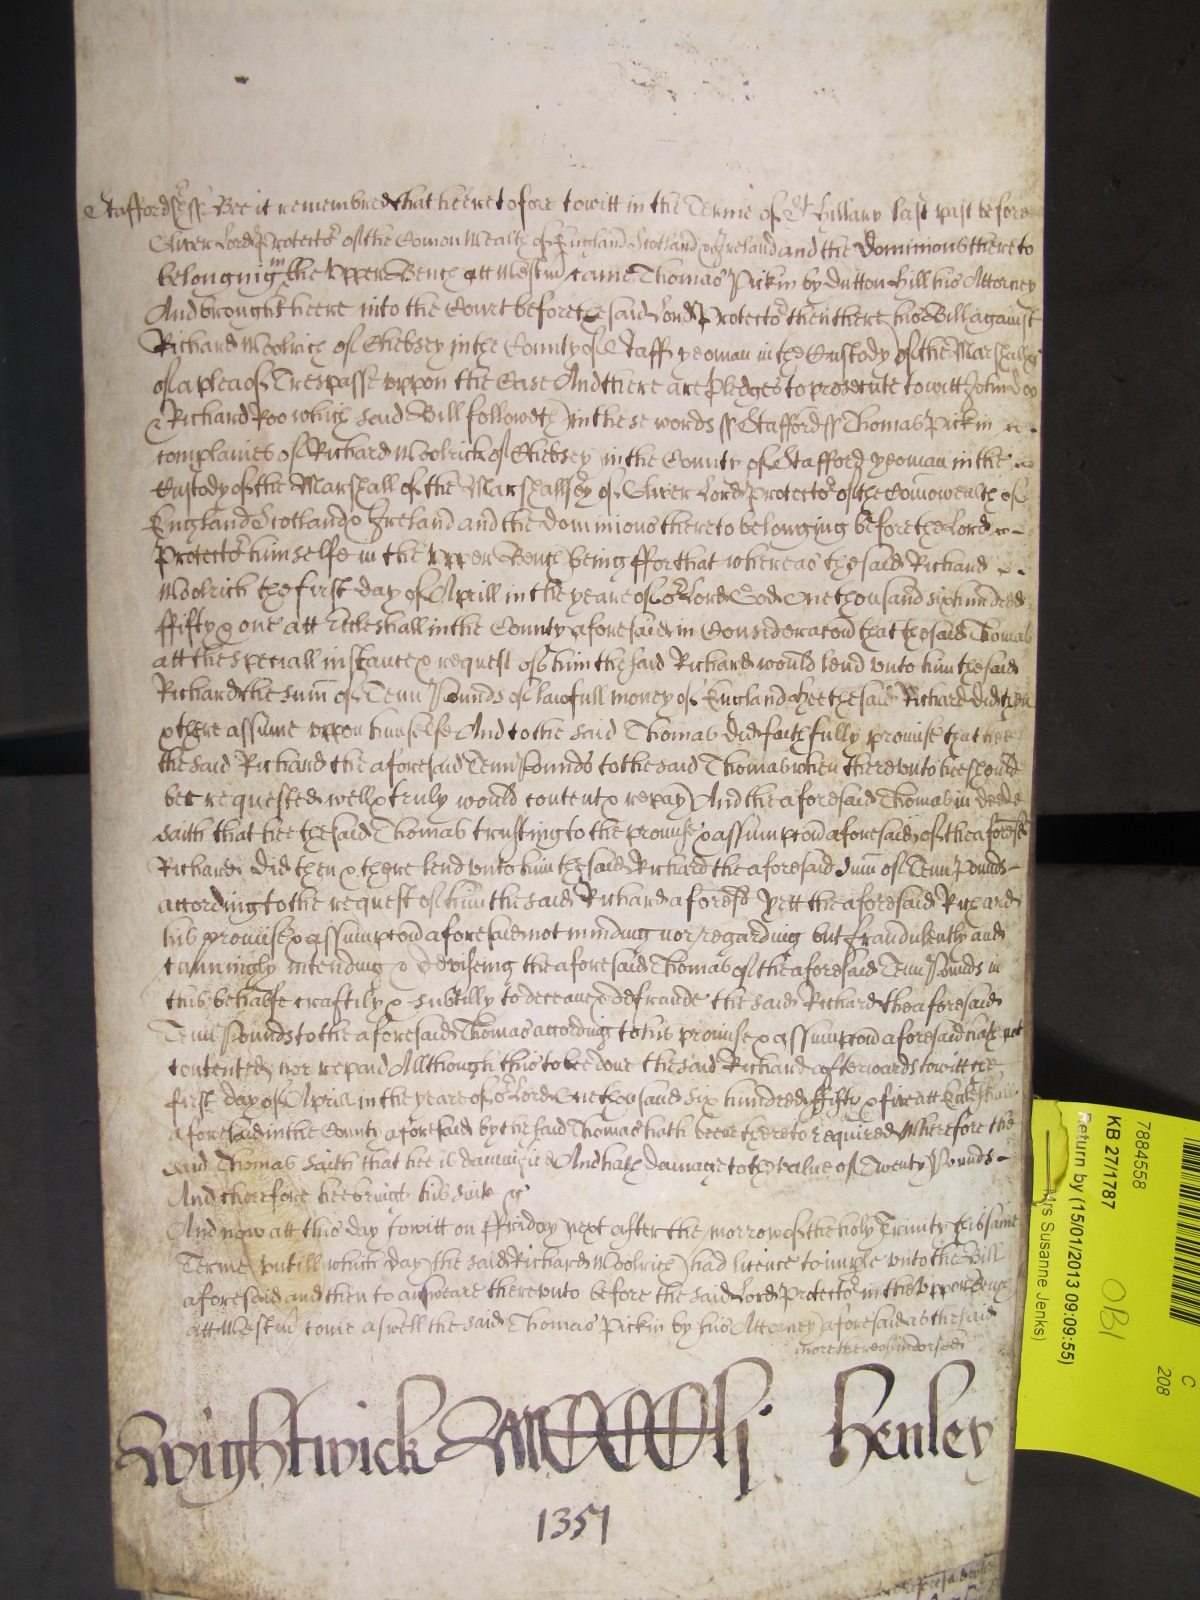 Staffordsh ss Bee it remembred that heeretofore towitt in the Terme of St Hillary last past before
Oliver Lord Protector of the Comon Wealth of England Scotland & Ireland and the dominions thereto
belonging in the Upper Bench att Westmr came Thomas Pickin by Dutton Hill his Attorney
And brought heere into the Court before the said Lord Protector then there his Bill against
Richard Woolrich of Chebsey in the County of Staff yeoman in the Custody of the Marshall &c
of a plea of Trespasse uppon the Case And there are pledges to prosecute towitt John Doo
& Richard Roo which said Bill followeth in these words ss Stafford ss Thomas Pickin
complaines of Richard Woolrich of Chebsey in the County of Stafford yeoman in the
Custody of the Marshall of the Marshallsey of Oliver Lord Protector of the Comowealth of
England Scotland & Ireland and the dominions thereto belonging before the Lord
Protector himselfe in the Upper Bench being ffor that whereas the said Richard
Woolrich the first day of Aprill in the yeare of or Lord God One thousand six hundred
ffifty & one att Eccleshall in the County aforesaid in Consideracon that the said Thomas
att the speciall instance & request of him the said Richard would lend unto him the said
Richard the sum of Tenn Pounds of lawfull money of England hee the said Richard did then
& there assume uppon himselfe And to the said Thomas did faithfully promise that hee
the said Richard the aforesaid Tenn Pounds to the said Thomas when thereunto hee should
bee requested well & truly would content & repay And the aforesaid Thomas in deede
saith that hee the said Thomas trusting to the promise & assumpcon aforesaid of the aforesd
Richard did then & there lend unto him the said Richard the aforesaid sum of Tenn Pounds
according to the request of him the said Richard aforesd Yett the aforesaid Richard
his promise & assumpcon aforesaid not minding nor regarding but fraudulently and
cunningly intending & deviseing the aforesaid Thomas of the aforesaid Tenn Pounds in
this behalfe craftily & subtilly to deceave & defraude the said Richard the aforesaid
Tenn Pounds to the aforesaid Thomas according to his promise & assumpcon aforesaid hath not
contented nor repaid Allthough this to bee done the said Richard afterwards towitt the
first day of Aprill in the yeare of or Lord One thousand six hundred ffifty & five att Eccleshall
aforesaid in the County aforesaid by the said Thomas hath beene thereto required Wherefore the
said Thomas saith that hee is damnified And hath damage to the value of Twenty Pounds
And therefore hee brings his suite &c
And now att this day towitt on ffriday next after the morrow of the holy Trinity this same
Terme untill which day the said Richard Woolrich had licence to imple unto the Bill
aforesaid and then to answeare thereunto before the said Lord Protector in the Upper Bench
att Westmr come aswell the said Thomas Pickin by his Attorney aforesaid as the said
more thereof indorsed
Wightwick Henley
1351
7884558
KB 27/1787
Return by (15/01/2013 09:09:55)
Mrs Susanne Jenks)
OBI
C
208